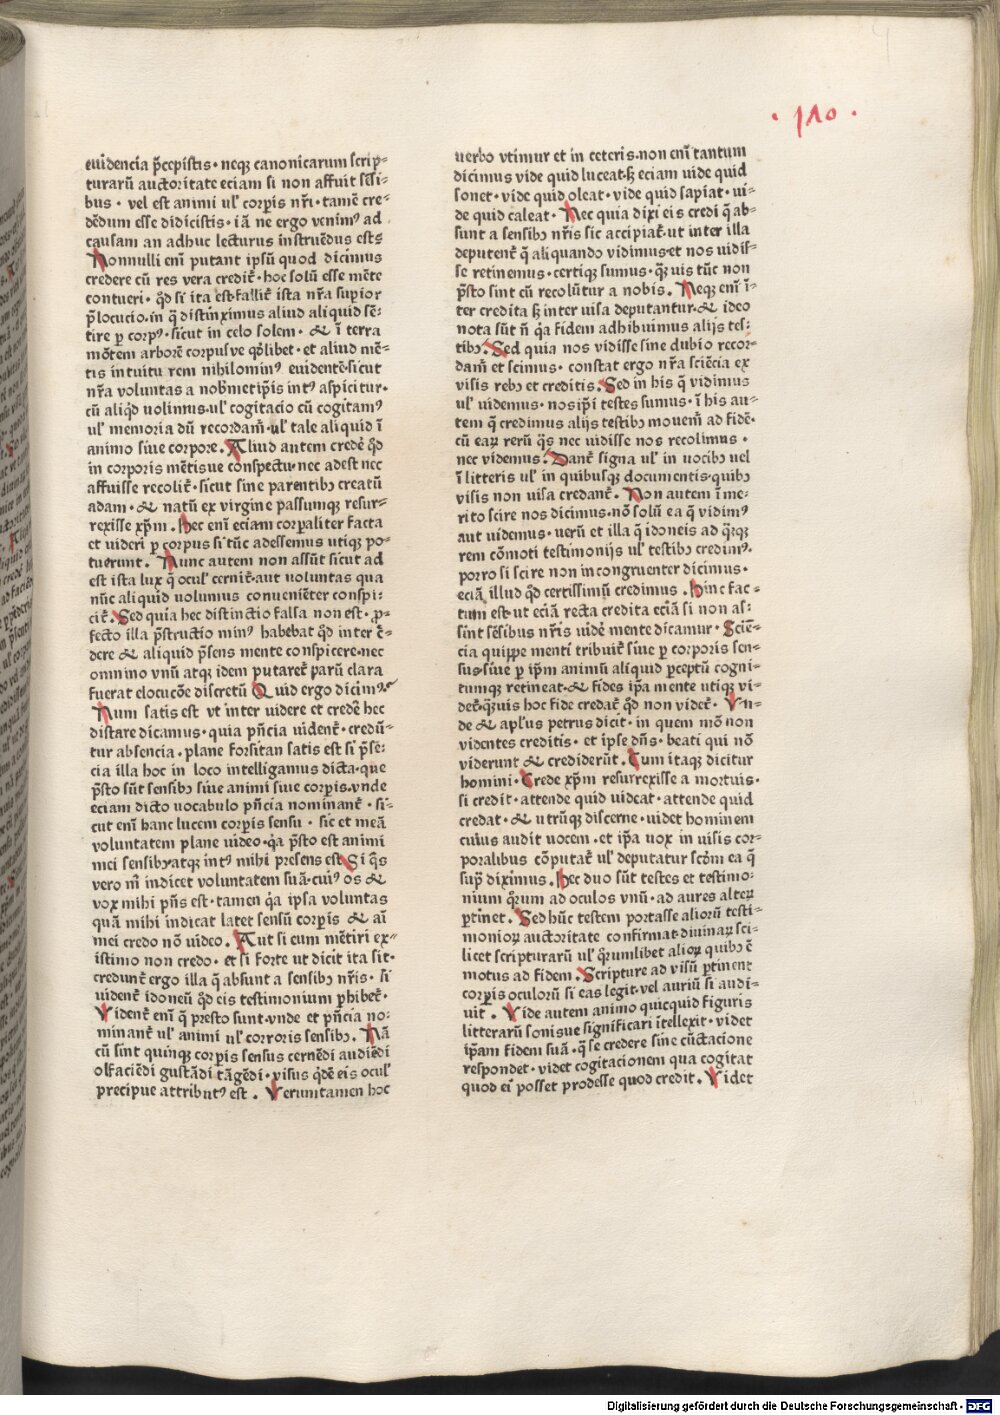 · 110 ·
euidencia p̄cepistis · neqȝ canonicarum scrip⸗
turarū auctoritate eciam si non affuit sēsi⸗
bus · vel est animi ul' corp̲is nr̄i · tamē cre⸗
dēdum esse didicistis · iā ne ergo venimꝰ ad
causam an adhuc lecturus instruēdus estꝭ
Nonnulli enī putant ipsū quod dicimus
credere cū res vera credit̄ · hoc solū esse mēte
contueri · qd̄ si ita est·fallit̄ ista nr̄a superior
p̄locucio·in q̄ distinximus aliud aliquid sē⸗
tire p̲ corpꝰ · sicut in celo solem · & ī terra
mōtem arborē corpusve qd̄libet · et aliud mē⸗
tis intuitu rem nihilominꝰ euidentē·sicut
nr̄a voluntas a nob̄·met ip̄is intꝰ aspicitur·
cū aliqd̄ uolimus·ul' cogitacio cū cogitamꝰ
ul' memoria dū recordam̄·ul' tale aliquid ī
animo siue corpore. Aliud autem crede᷑ qd̄
in corporis mētisue conspectu·nec adest nec
affuisse recolit̄ · sicut sine parentibȝ creatū
adam · & natū ex virgine passumqȝ resur⸗
rexisse xp̄m. Hec enī eciam corp̲aliter facta
et videri p̲ corpus si tūc adessemus utiqȝ po⸗
tuerunt. Nunc autem non assūt sicut ad
est ista lux q̄ ocul' cernit̄·aut voluntas qua
nūc aliquid volumus conueniēter conspi⸗
cit̄. Sed quia hec distinctio falsa non est · ꝓ⸗
fecto illa p̄structio minꝰ habebat qd̄ inter c̄⸗
dere & aliquid p̄sens menti conspicere·nec
omnino vnū atqȝ idem putaret̄ parū clara
fuerat elocucōe discretū Quid ergo dicimꝰ
Num satis est vt inter videre et crede᷑ hec
distare dicamus · quia pn̄cia uident̄ · credū⸗
tur absencia · plane forsitan satis est si p̄sē⸗
cia illa hoc in loco intelligamus dicta·que
p̄sto sūt sensibȝ siue animi siue corp̲is·vnde
eciam dicto uocabulo pn̄cia nominant̄ · si⸗
cut enī hanc lucem corp̲is sensu · sic et meā
voluntatem plane video·qa p̄sto est animi
mei sensibȝ·atqȝ intꝰ mihi presens est Si qs̄
vero mī indicet voluntatem suā·cuiꝰ os &
vox mihi pn̄s est · tamen qa ipsa voluntas
quā mihi indicat latet sensū corp̲is & aī
mei credo nō video. Aut si eum mētiri ex⸗
istimo non credo · et si forte ut dicit ita sit·
credunt̄ ergo illa q̄ absunt a sensibȝ nr̄is · si
uident̄ idoneū qd̄ eis testimonium p̲hibet̄·
Vident̄ enī q̄ presto sunt·vnde et pn̄cia no⸗
minant̄ ul' animi ul' corroris sensibȝ. Nā
cū sint quinqȝ corp̲is sensus cernēdi audiēdi
olfaciēdi gustādi tāgēdi · visus qd̄ē eis ocul'
precipue attributꝰ est. Veruntamen hoc
uerbo vtimur et in ceteris·non enī tantum
dicimus vide quid luceat·sȝ eciam uide quid
sonet · vide quid oleat · vide quid sapiat · ui⸗
de quid caleat · Nec quia dixi eis credi q̄ ab⸗
sunt a sensibȝ nr̄is sic accipiat̄·ut inter illa
deputent̄ q̄ aliquando vidimus·et nos uidis⸗
se retinemus · certiqȝ sumus · qȝuis tūc non
p̄sto sint cū recolūtur a nobis. Neqȝ enī ī⸗
ter credita sȝ inter uisa deputantur·& ideo
nota sūt n̄ qa fidem adhibuimus alijs tes⸗
tibȝ. Sed quia nos vidisse sine dubio recor⸗
dam̄ et scimus · constat ergo nr̄a sciēcia ex
visis rebȝ et creditis. Sed in his q̄ vidimus
ul' uidemus · nos ip̄i testes sumus · ī his au⸗
tem q̄ credimus alijs testibȝ mouem̄ ad fidē·
cū eaꝝ rerū qs̄ nec uidisse nos recolimus ·
nec videmus. Dant̄ signa ul' in uocibȝ uel
ī litteris ul' in quibusqȝ documentis·quibȝ
visis non uisa credant̄. Non autem ī me⸗
rito scire nos dicimus·nō solū ea q̄ vidimꝰ
aut uidemus · uerū et illa q̄ idoneis ad qrqȝ
rem cōmoti testimonijs ul' testibȝ credimꝰ·
porro si scire non incongruenter dicimus·
eciā illud qd̄ certissimū credimus. Hinc fac⸗
tum est·ut eciā recta credita eciā si non as⸗
sint sēsibus nr̄is uide᷑ mente dicamur · Sciē⸗
cia quippe menti tribuit̄ siue p̲ corporis sen⸗
sus·siue p̲ ip̄m animū aliquid p̲ceptū cogni⸗
tumqȝ retineat·& fides ip̄a mente utiqȝ vi⸗
det̄·qȝuis hoc fide credat̄ qd̄ non videt̄. Vn⸗
de & apl'us petrus dicit · in quem mō non
videntes creditis · et ipse dn̄s · beati qui nō
viderunt & crediderūt. Cum itaqȝ dicitur
homini · Crede xp̄m resurrexisse a mortuis·
si credit · attende quid uideat · attende quid
credat · & utrūqȝ discerne · uidet hominem
cuius audit uocem · et ip̄a uox in uisis cor⸗
poralibus cōputat̄ ul' deputatur scd̄m ea q̄
sup̲ diximus. Hec duo sūt testes et testimo⸗
nium qrum ad oculos vnū · ad aures alteꝝ
p̲tinet. Sed hūc testem portasse aliorū testi⸗
monioꝝ auctoritate confirmat·diuinaꝝ sci⸗
licet scripturarū ul' qrumlibet alioꝝ quibȝ ē
motus ad fidem. Scripture ad visū p̲tinent
corp̲is oculorū si eas legit·vel auriū si audi⸗
uit. Vide autem animo quicquid figuris
litterarū sonisue significari ītellexit · videt
ip̄am fidem suā · q̄ se credere sine cūctacione
respondet · videt cogitacionem qua cogitat
quod ei posset prodesse quod credit. Videt
Digitalisierung gefördert durch die Deutsche Forschungsgemeinschaft - DFG